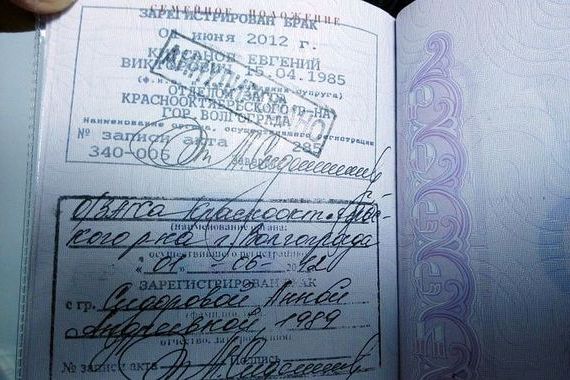 СЕМЕЙНОЕ ПОЛОЖЕНИЕ
ЗАРЕГИСТРИРОВАН БРАК
01 июня 2012 г.
ЕВГЕНИЙ
ВИКТОРОВИЧ 15.04.1985
ОТДЕЛОМ ЗАГСА
КРАСНООКТЯБРЬСКОГО Р-НА
ГОР. ВОЛГОГРАДА
Наименование органа, осуществившего регистрацию
№ записи акта 285
340-006
О/ЗАГСа Краснооктябрь-
ского р-на г. Волгограда
(наименование органа,
осуществившего регистрацию)
"01" 06 2012
ЗАРЕГИСТРИРОВАН БРАК
с гр. Сидоровой Анной
Андреевной, 1989
№ записи акта Подпись